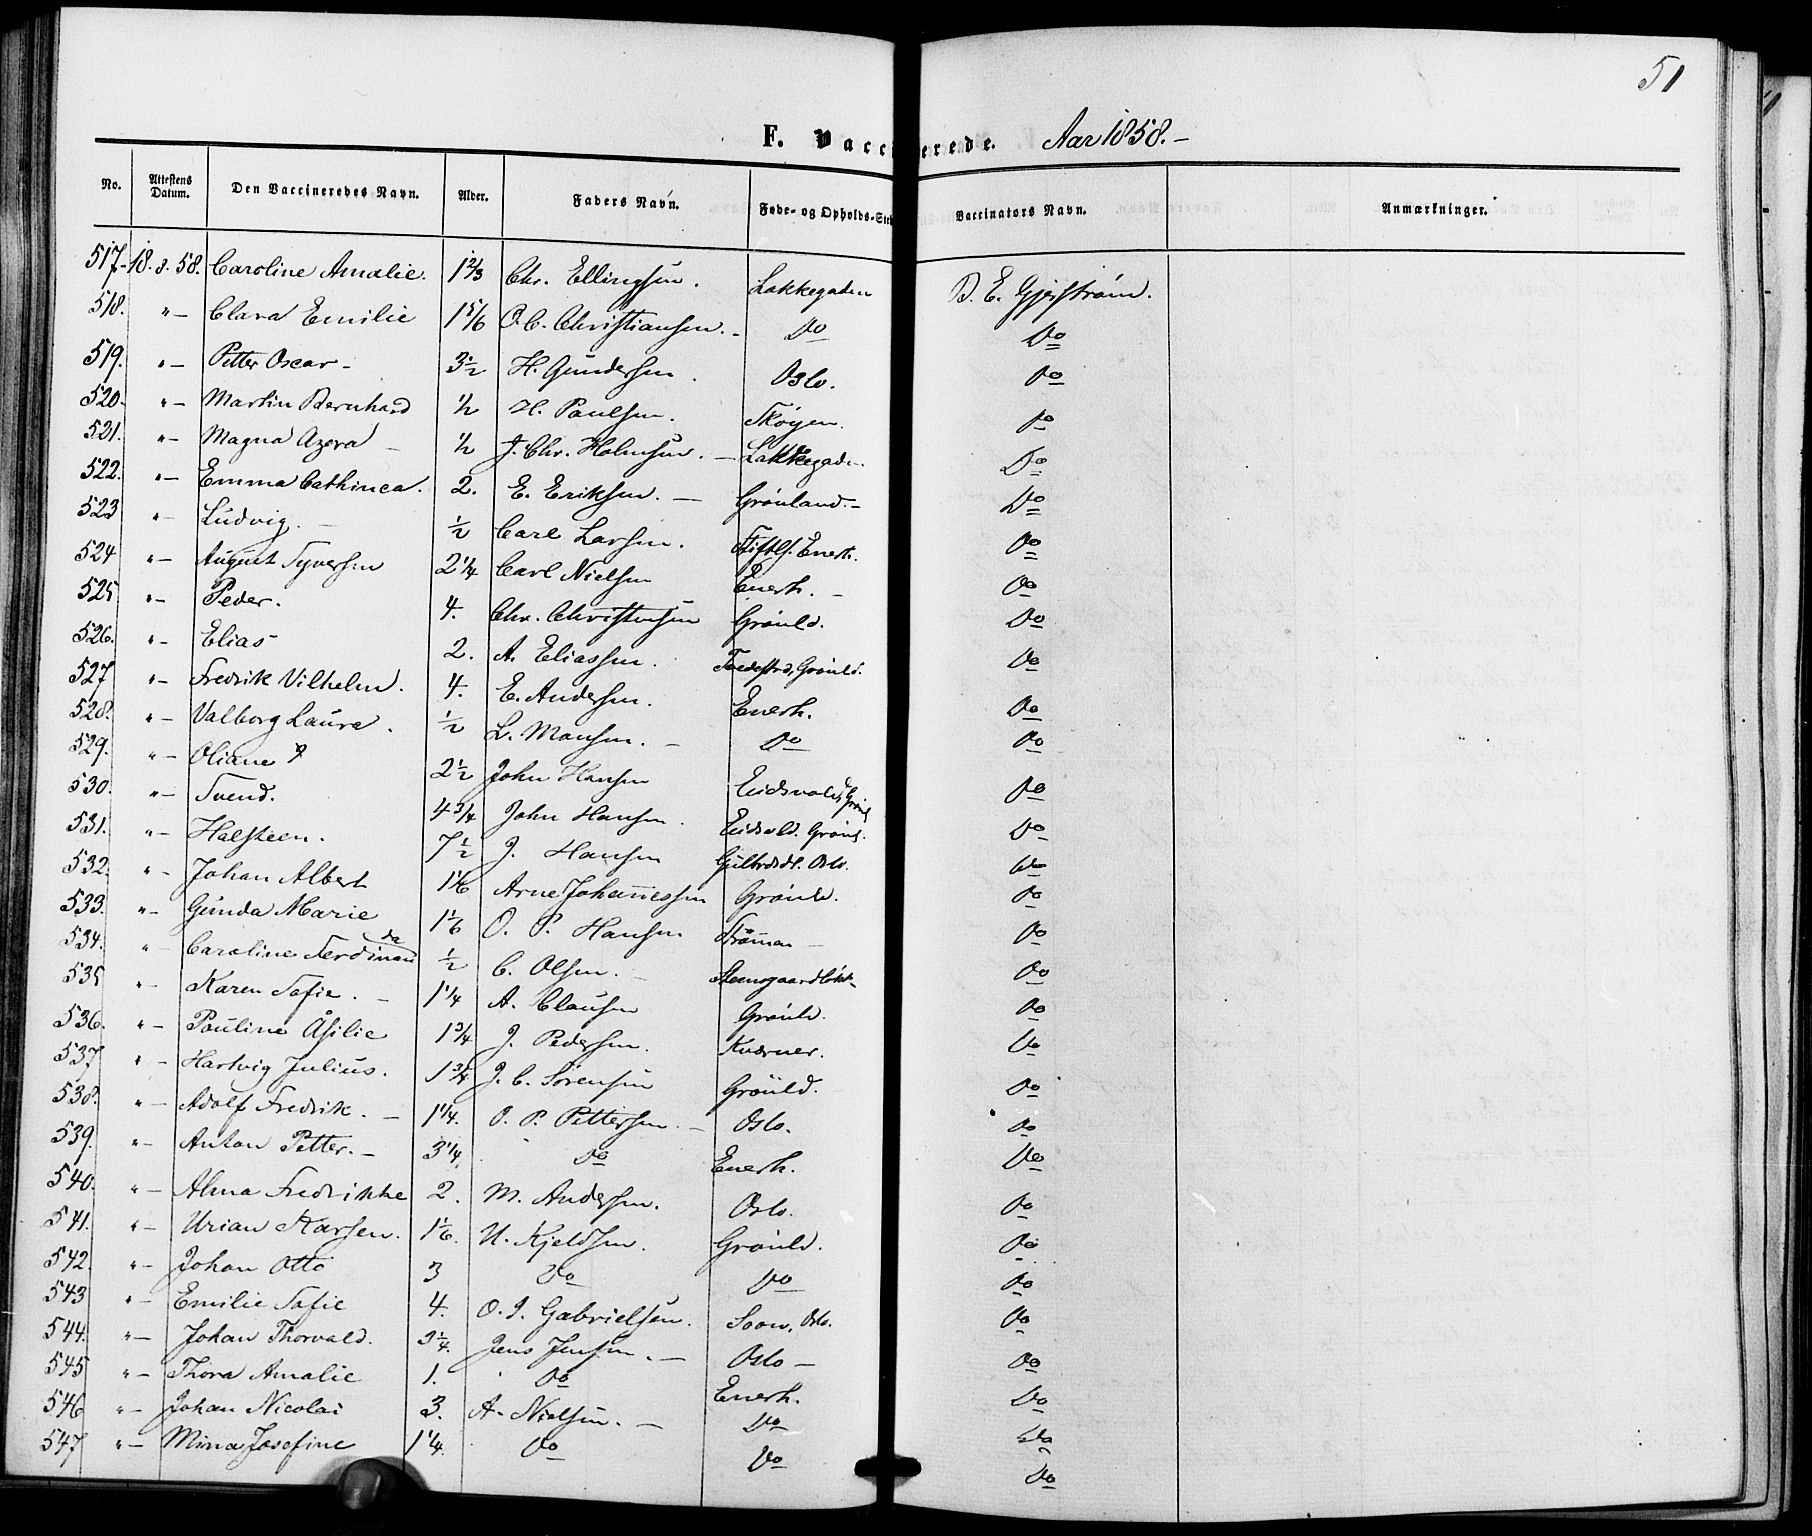 51
F. Vaccinerede. Aar 1858.-
No. Attestens Datum. Den Vaccineredes Navn. Alder. Faders Navn. Føde- og Opholds-Ste Vaccinators Navn. Anmærkninger.
517. 18. 8. 58. Caroline Amalie. 1 2/3 Chr. Ellingsen. Lakkegaden B. E. Gjerstrøm.
518. "— Clara Emilie 1 5/6 O. C. Christiansen. - Do Do
519. "— Petter Oscar - 3 1/2 H. Gundersen. Oslo. Do
520. "— Martin Bernhard 1/2 H. Paulsen. Skøyen. Do
521. "— Magna Azora — 1/2 J. Chr. Holmsen. — Lakkegad. Do
522. "— Emma Cathinca. 2. E. Eriksen. — Grønland. - Do
523 "— Ludvig. — 1/2 Carl Larsen. Enerh. Do
524 "— August Syversen 2 1/4 Carl Nielsen Enerh. — Do
525 "— Peder. 4. Chr. Christensen Grønld. Do
526. "— Elias 2. A. Eliassen. Grønld. Do
527 "— Fredrik Vilhelm. 4. E. Andersen. Enerh. Do
528. "— Valborg Laura. 1/2 L. Monsen. — Do Do
529. "— Oliane 2 1/2 John Hansen Eidsvold, Grønl Do
530. "— Svend. 4 3/4 John Hansen. Eidsvold. Grønl. Do
531. "— Halsteen. 7 1/2 J. Hansen Oslo. Do
532. "— Johan Albert 1 1/6 Arne Johannessen Grønld. Do
533. "— Gunda Marie 1 1/6 O. P. Hansen Strømmen — Do
534. "— Caroline Ferdinanda 1/2 C. Olsen. — Do
535 "— Karen Sofie. — 1 1/4 A. Clausen Grønld. Do
536. "— Pauline Åsilie 1 3/4 J. Pedersen. Kværner. Do
537 "— Hartvig Julius. 1 3/4 J. C. Sørensen Grønld. Do
538. "— Adolf Fredrik. — 1 1/4. O. P. Pettersen. — Oslo. Do
539. "— Anton Petter. — 3 1/4. Do Enerh. Do
540. "— Alma Fredrikke 2. M. Andersen. Oslo. Do
541. "— Urian Karsen. 1 1/6. U. Kjeldsen. Grønld. Do
542. "— Johan Otto 3 Do Do Do
543 "— Emilie Sofie 4. O. J. Gabrielsen. Soon, Oslo. Do
544. "— Johan Thorvald. 3 1/4. Jens Jensen. — Oslo — Do
545 "— Thora Amalie 1. Do Enerh. Do
546 "— Johan Nicolai 3. A. Nielsen. — Do Do
547 "— Mina Josefine 1 1/4. Do Do Do